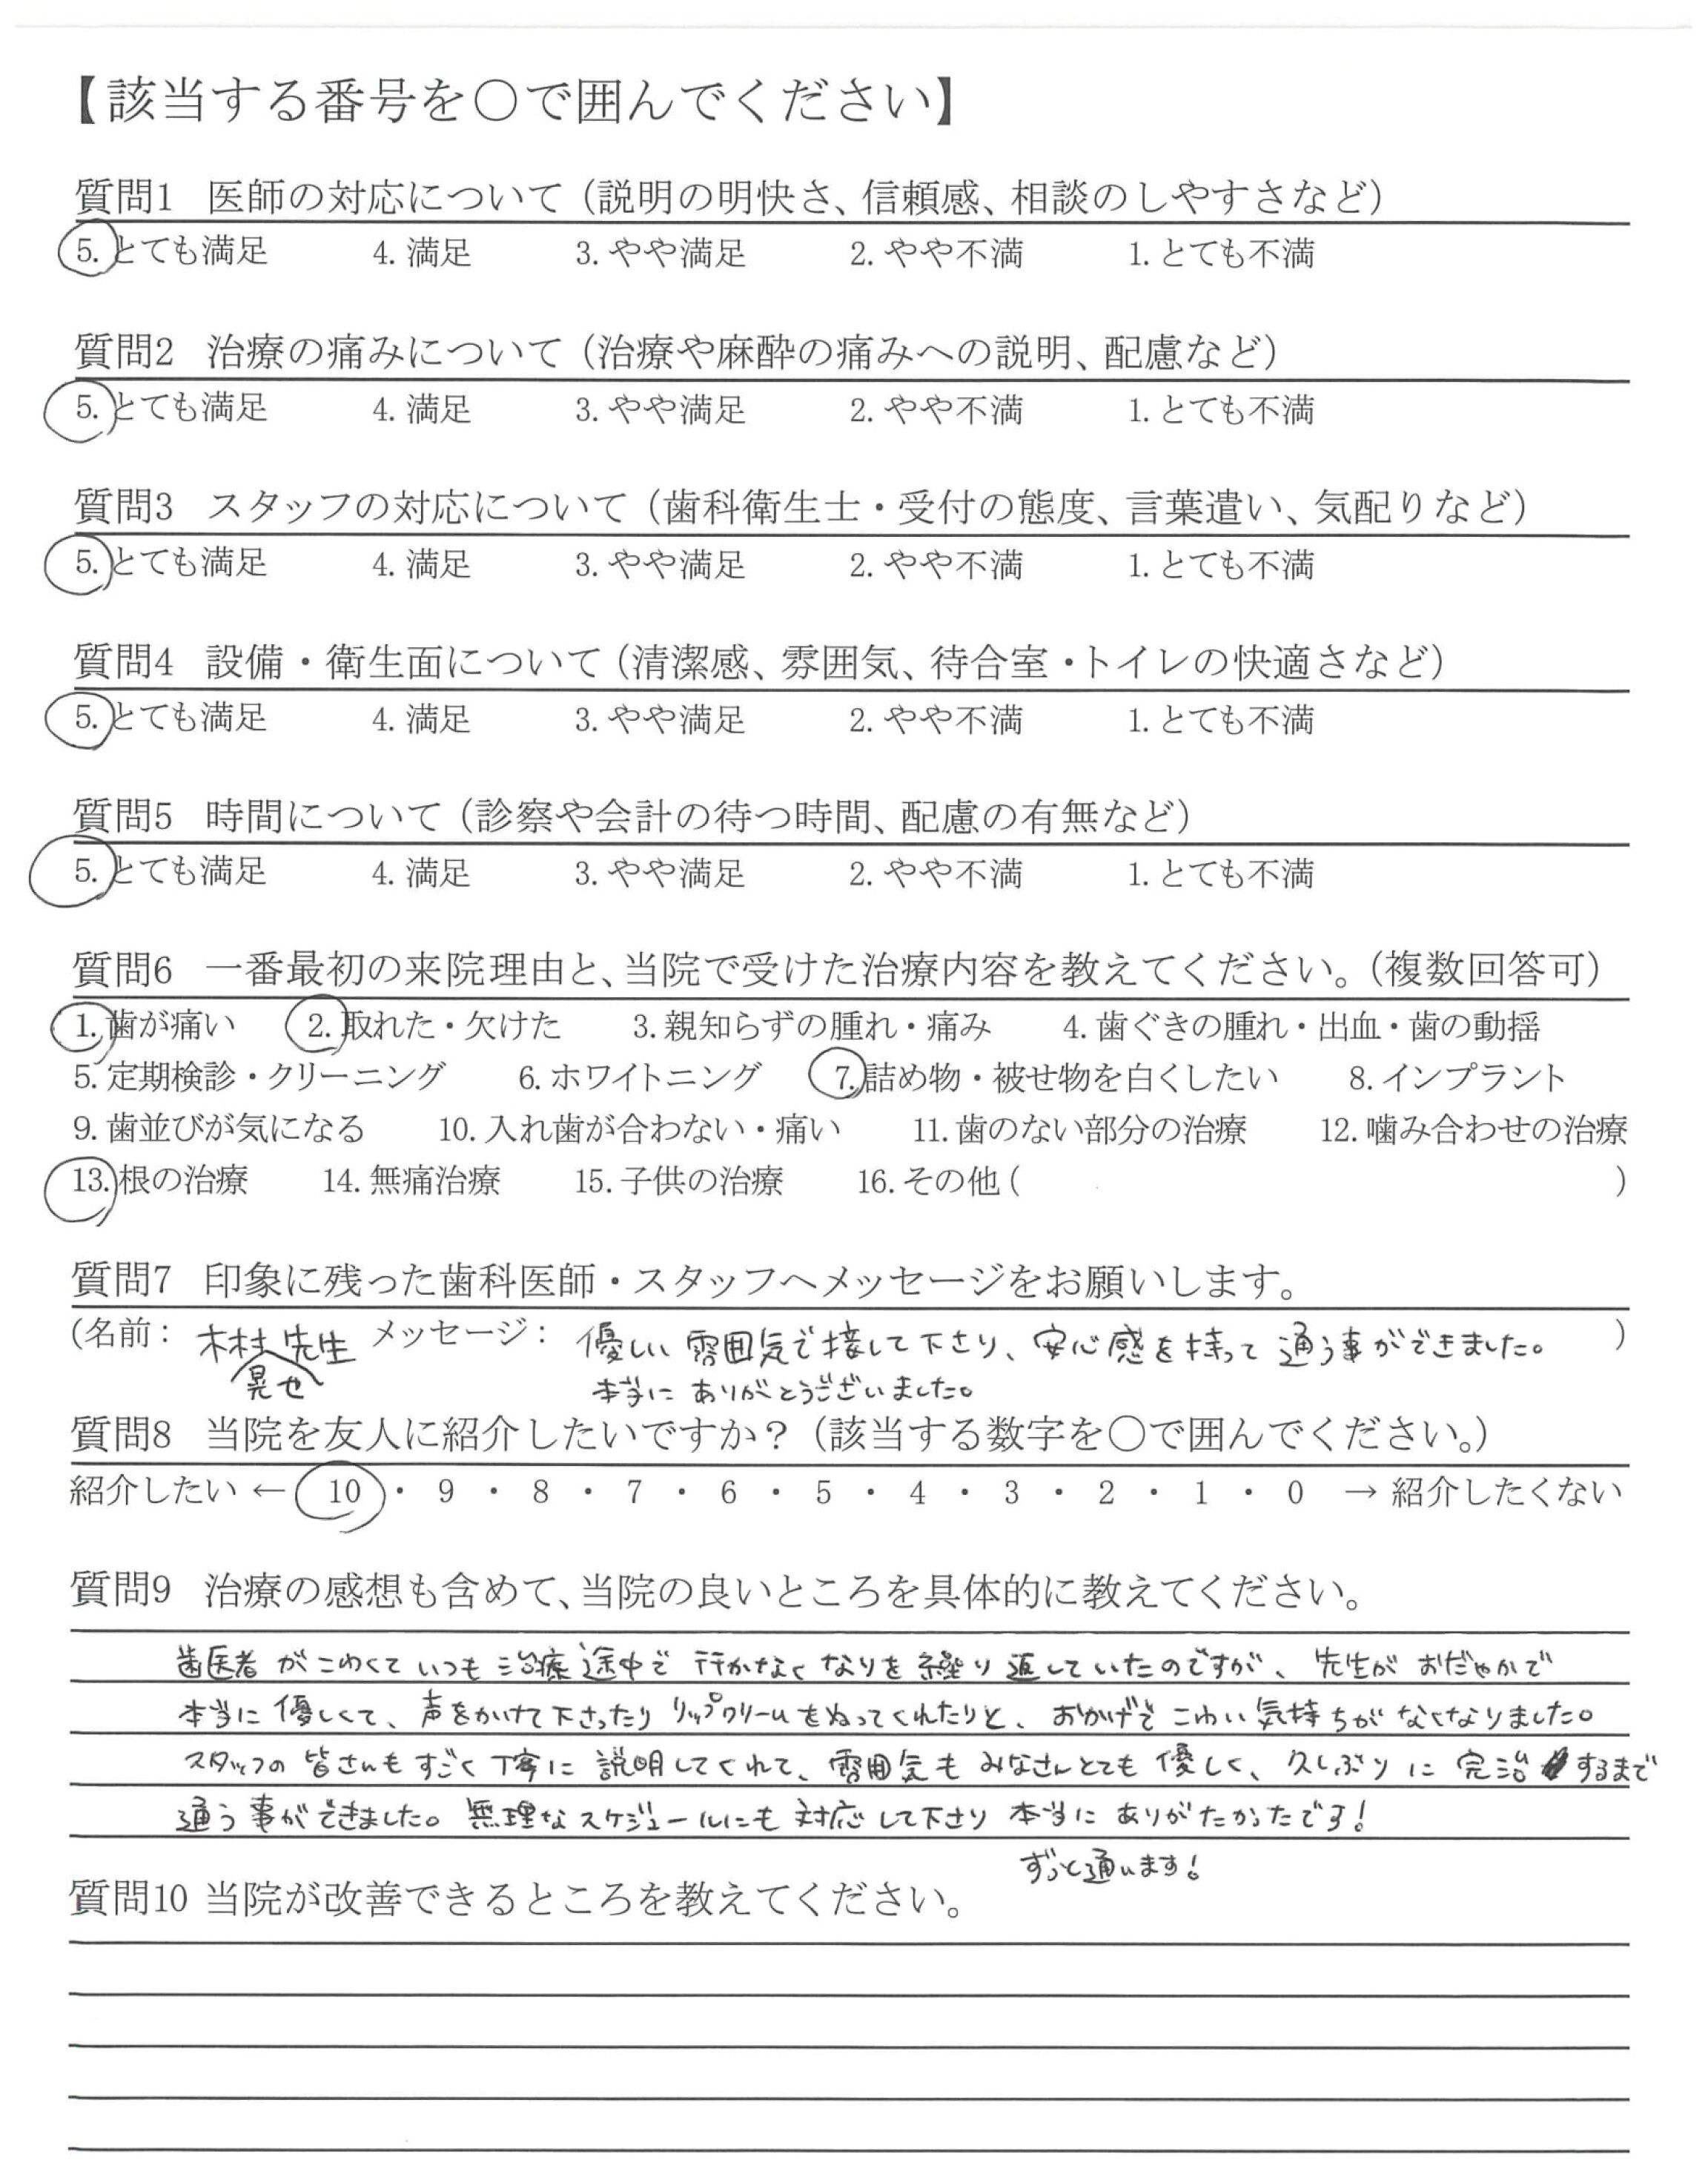 【該当する番号を○で囲んでください】
質問1 医師の対応について（説明の明快さ、信頼感、相談のしやすさなど）
5. とても満足 4. 満足 3. やや満足 2. やや不満 1. とても不満
質問2 治療の痛みについて（治療や麻酔の痛みへの説明、配慮など）
5. とても満足 4. 満足 3. やや満足 2. やや不満 1. とても不満
質問3 スタッフの対応について（歯科衛生士・受付の態度、言葉遣い、気配りなど）
5. とても満足 4. 満足 3. やや満足 2. やや不満 1. とても不満
質問4 設備・衛生面について（清潔感、雰囲気、待合室・トイレの快適さなど）
5. とても満足 4. 満足 3. やや満足 2. やや不満 1. とても不満
質問5 時間について（診察や会計の待つ時間、配慮の有無など）
5. とても満足 4. 満足 3. やや満足 2. やや不満 1. とても不満
質問6 一番最初の来院理由と、当院で受けた治療内容を教えてください。（複数回答可）
1. 歯が痛い 2. 取れた・欠けた 3. 親知らずの腫れ・痛み 4. 歯ぐきの腫れ・出血・歯の動揺
5. 定期検診・クリーニング 6. ホワイトニング 7. 詰め物・被せ物を白くしたい 8. インプラント
9. 歯並びが気になる 10. 入れ歯が合わない・痛い 11. 歯のない部分の治療 12. 噛み合わせの治療
13. 根の治療 14. 無痛治療 15. 子供の治療 16. その他（ ）
質問7 印象に残った歯科医師・スタッフへメッセージをお願いします。
（名前： 木村 先生 メッセージ： 優しい雰囲気で接して下さり、安心感を持って通う事ができました。 ）
晃也 本当にありがとうございました。
質問8 当院を友人に紹介したいですか？（該当する数字を○で囲んでください。）
紹介したい ← 10 ・ 9 ・ 8 ・ 7 ・ 6 ・ 5 ・ 4 ・ 3 ・ 2 ・ 1 ・ 0 → 紹介したくない
質問9 治療の感想も含めて、当院の良いところを具体的に教えてください。
歯医者がこわくていつも治療途中で行かなくなりを繰り返していたのですが、先生がおだやかで
本当に優しくて、声をかけて下さったりリップクリームをぬってくれたりと、おかげでこわい気持ちがなくなりました。
スタッフの皆さんもすごく丁寧に説明してくれて、雰囲気もみなさんとても優しく、久しぶりに完治するまで
通う事ができました。無理なスケジュールにも対応して下さり本当にありがたかったです！
ずっと通います！
質問10 当院が改善できるところを教えてください。